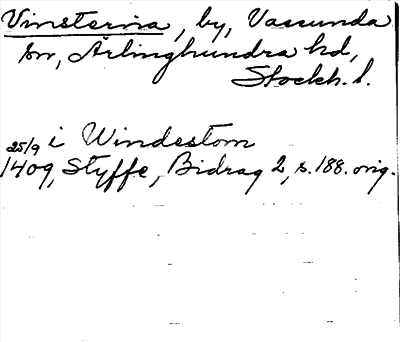 Vinsterna, by, Vassunda
sn, Ärlinghundra hd,
Stockh. l.
25/9 i Windestom
1409, Styffe, Bidrag 2, s. 188. orig.